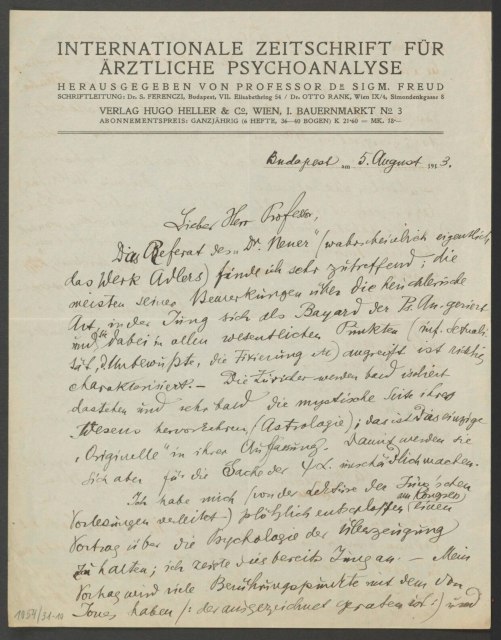 INTERNATIONALE ZEITSCHRIFT FÜR
ÄRZTLICHE PSYCHOANALYSE
HERAUSGEGEBEN VON PROFESSOR Dr SIGM. FREUD
SCHRIFTLEITUNG: Dr. S. FERENCZI, Budapest, VII. Elisabethring 54 / Dr. OTTO RANK, Wien IX/4, Simondenkgasse 8
VERLAG HUGO HELLER & Co, WIEN, I. BAUERNMARKT No 3
ABONNEMENTSPREIS: GANZJÄHRIG (6 HEFTE, 36—40 BOGEN) K 21·60 = MK. 18·—
Budapest am 5. August 1913.
Lieber Herr Professor,
Das Referat des „Dr. (wahrscheinlich eigentlich
das Werk Adlers) fände ich sehr zutreffend; die
meisten seiner Bemerkungen über die heuchlerische
Art, in der Jung sich als Bayard der geriert
und dabei in allen wesentlichen Punkten (inf. Sexuali-
tät, Unbewußte, die Fixierung etc) angreift ist richtig
charakterisiert. — Die Züricher werden bald isoliert
dastehen und sehr bald die mystische Seite ihres
Wesens hervorkehren (Astrologie); das ist das einzige
„Originelle" in ihrer Auffassung. Damit werden sie
sich aber für die Sache der unschädlich machen.
Ich habe mich (von der Lektüre der Jung'schen
Vorlesungen verleitet) plötzlich entschlossen, am Kongreß einen
Vortrag über die Psychologie der Überzeugung
zu halten; ich zeigte dies bereits Jung an. — Mein
Vortrag wird viele Berührungspunkte mit dem von
Jones haben /: der ausgezeichnet geraten ist :/ und
1054/31-10